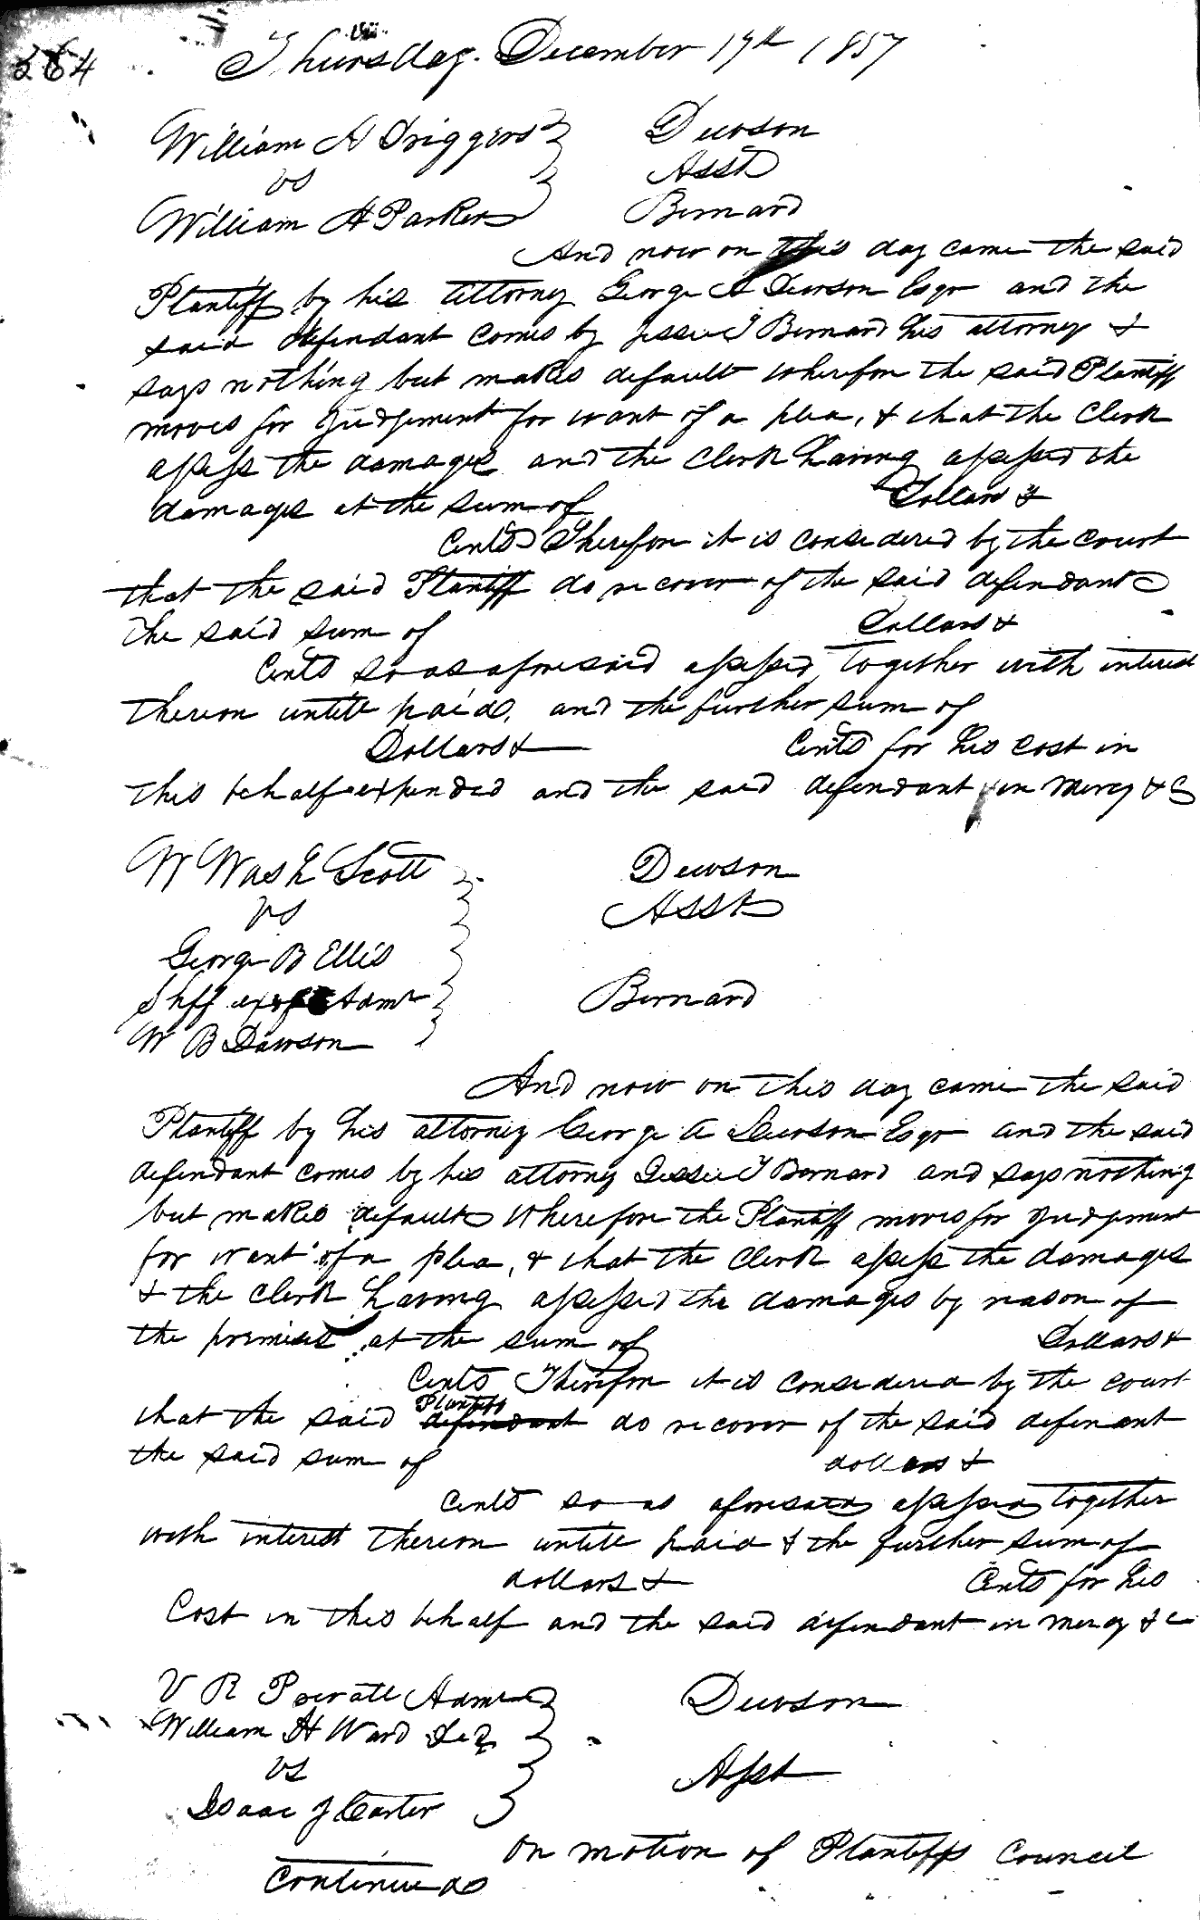 264
Thursday. December 17th 1857
William A Driggers Dewson
vs Asst
William H Parker Bernard
And now on this day came the said
Plantiff by his attorney George A Dewson Esqr and the
said defendant comes by Jessie T Bernard his attorney &
says nothing but makes default wherefore the said Plantiff
moves for Judgement for want of a plea, & that the Clerk
assess the damages and the Clerk having assessed the
damages at the sum of Dollars &
Cents Therefore it is considered by the court
that the said Plantiff do recover of the said defendant
the said sum of Dollars &
Cents so as aforesaid assessed together with interest
thereon untill paid, and the further sum of
Dollars & Cents for his cost in
this behalf expended and the said defendant in mercy & C
W Wash Scott Dewson
vs Asst
George B Ellis
Shff exof Admr Bernard
W B Dawson
And now on this day came the said
Plantiff by his attorney George A Dewson Esqr and the said
defendant comes by his attorney Jessie T Bernard and says nothing
but makes default Wherefore the Plantiff moves for Judgment
for want of a plea, & that the Clerk assess the damages
& the Clerk having assessed the damages by reason of
the premises at the sum of Dollars &
Cents Therefore it is considered by the court
that the said defendant Plantiff do recover of the said defenant
the said sum of dollars &
Cents so as aforesaid assessed together
with interest thereon untill paid & the further sum of
dollars & Cents for his
Cost in this behalf and the said defendant in mercy & c
V R Privatt Admr Dewson
William H Ward
vs Asst
Isaac J Carter
On motion of Plantiffs Council
Continued